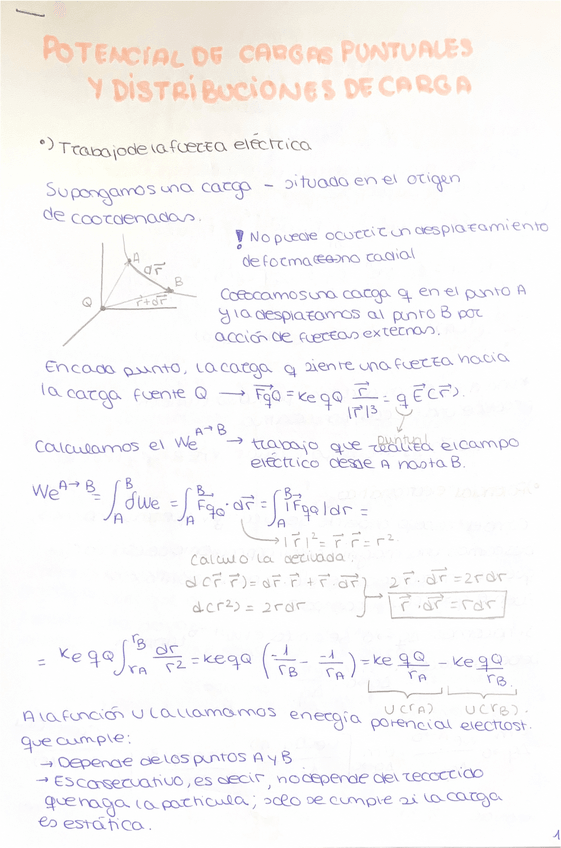 POTENCIAL DE CARGAS PUNTUALES
Y DISTRIBUCIONES DE CARGA
°) Trabajo de la fuerza eléctrica
Supongamos una carga - situado en el origen
de coordenadas.
! No puede ocurrir un desplazamiento
de forma no radial
A
dr⃗
B
Q
r⃗+dr⃗
Colocamos una carga q en el punto A
y la desplazamos al punto B por
acción de fuerzas externas.
En cada punto, la carga q siente una fuerza hacia
la carga fuente Q → F⃗qQ = Ke qQ r⃗/|r⃗|³ = q E⃗(r⃗).
puntual
Calculamos el We^A→B → trabajo que realiza el campo
eléctrico desde A hasta B.
We^A→B = ∫_A^B δWe = ∫_A^B F⃗qQ · dr⃗ = ∫_A^B |F⃗qQ| dr =
→ |r⃗|² = r⃗ r⃗ = r²
Calculo la derivada:
d(r⃗·r⃗) = dr⃗·r⃗ + r⃗·dr⃗
d(r²) = 2rdr
2r⃗·dr⃗ = 2rdr
r⃗·dr⃗ = rdr
= Ke qQ ∫_rA^rB dr/r² = Ke qQ (-1/rB - -1/rA) = Ke qQ/rA - Ke qQ/rB
U(rA) U(rB).
A la función U la llamamos energía potencial electrost.
que cumple:
→ Depende de los puntos A y B
→ Es conservativo, es decir, no depende del recorrido
que haga la partícula; solo se cumple si la carga
es estática.
1